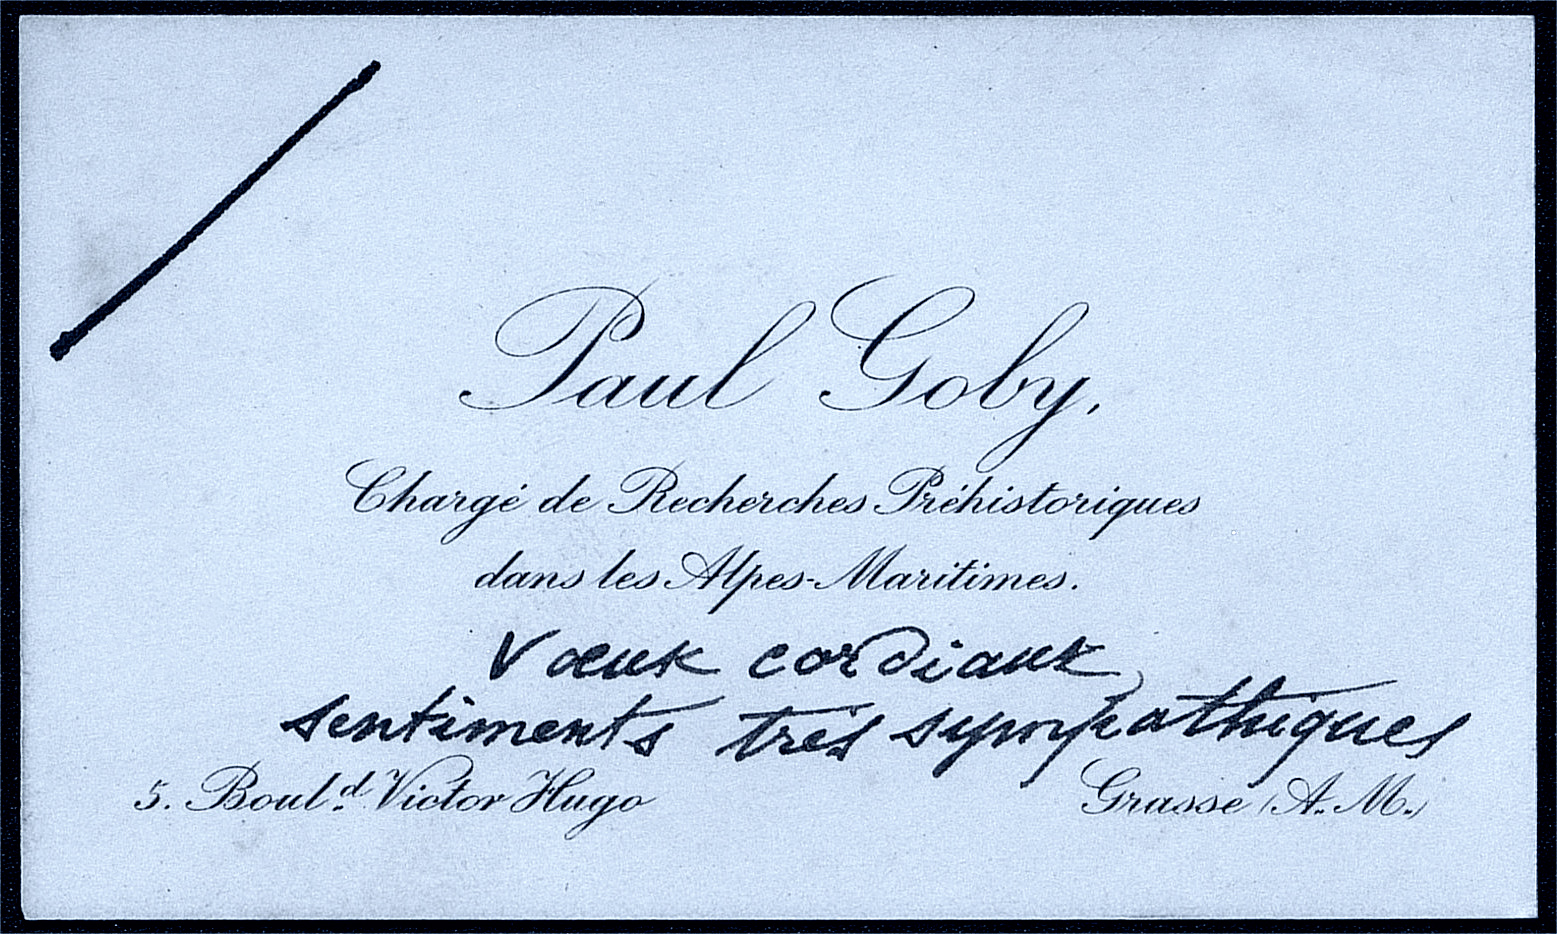 Paul Goby,
Chargé de Recherches Préhistoriques
dans les Alpes-Maritimes.
Vœux cordiaux,
sentiments très sympathiques
5. Boul.d Victor Hugo
Grasse (A. M.)